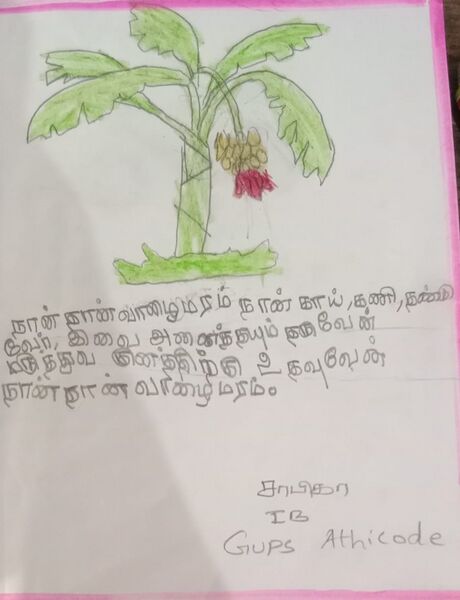 நான் தான் வாழைமரம் நான் காய், கனி, தண்டு
வேர், இலை அனைத்தயும் தருவேன்
மருத்துவ குனத்திற்கு உதவுவேன்
நான் தான் வாழைமரம்.
சாபிகா
IB
GUPS Athicode